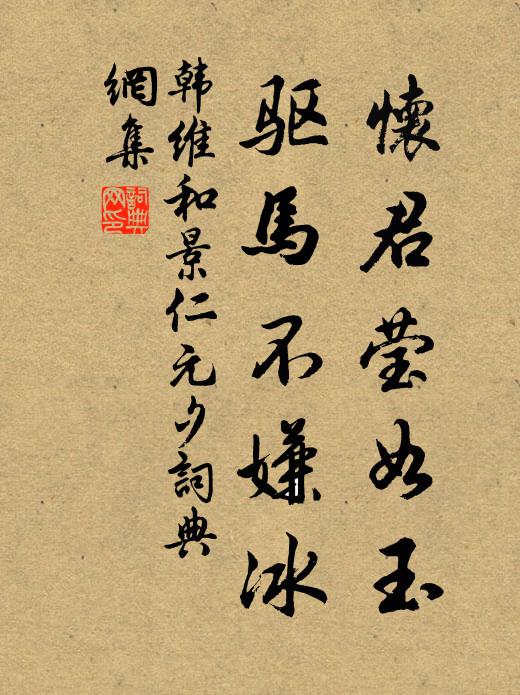 懷君莹如玉
驱馬不嫌冰
韩维和景仁元夕詞典
網集
詞典网印